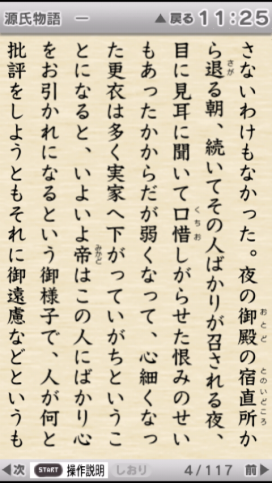 源氏物語 一 ▲戻る 11:25
さないわけもなかった。夜の御殿の宿直所か
おとど とのいどころ
ら退る朝、続いてその人ばかりが召される夜、
さが
目に見耳に聞いて口惜しがらせた恨みのせい
くちお
もあったかからだが弱くなって、心細くなっ
た更衣は多く実家へ下がっていがちというこ
とになると、いよいよ帝はこの人にばかり心
みかど
をお引かれになるという御様子で、人が何と
批評をしようともそれに御遠慮などというも
◀次 START 操作説明 しおり 4/117 前▶